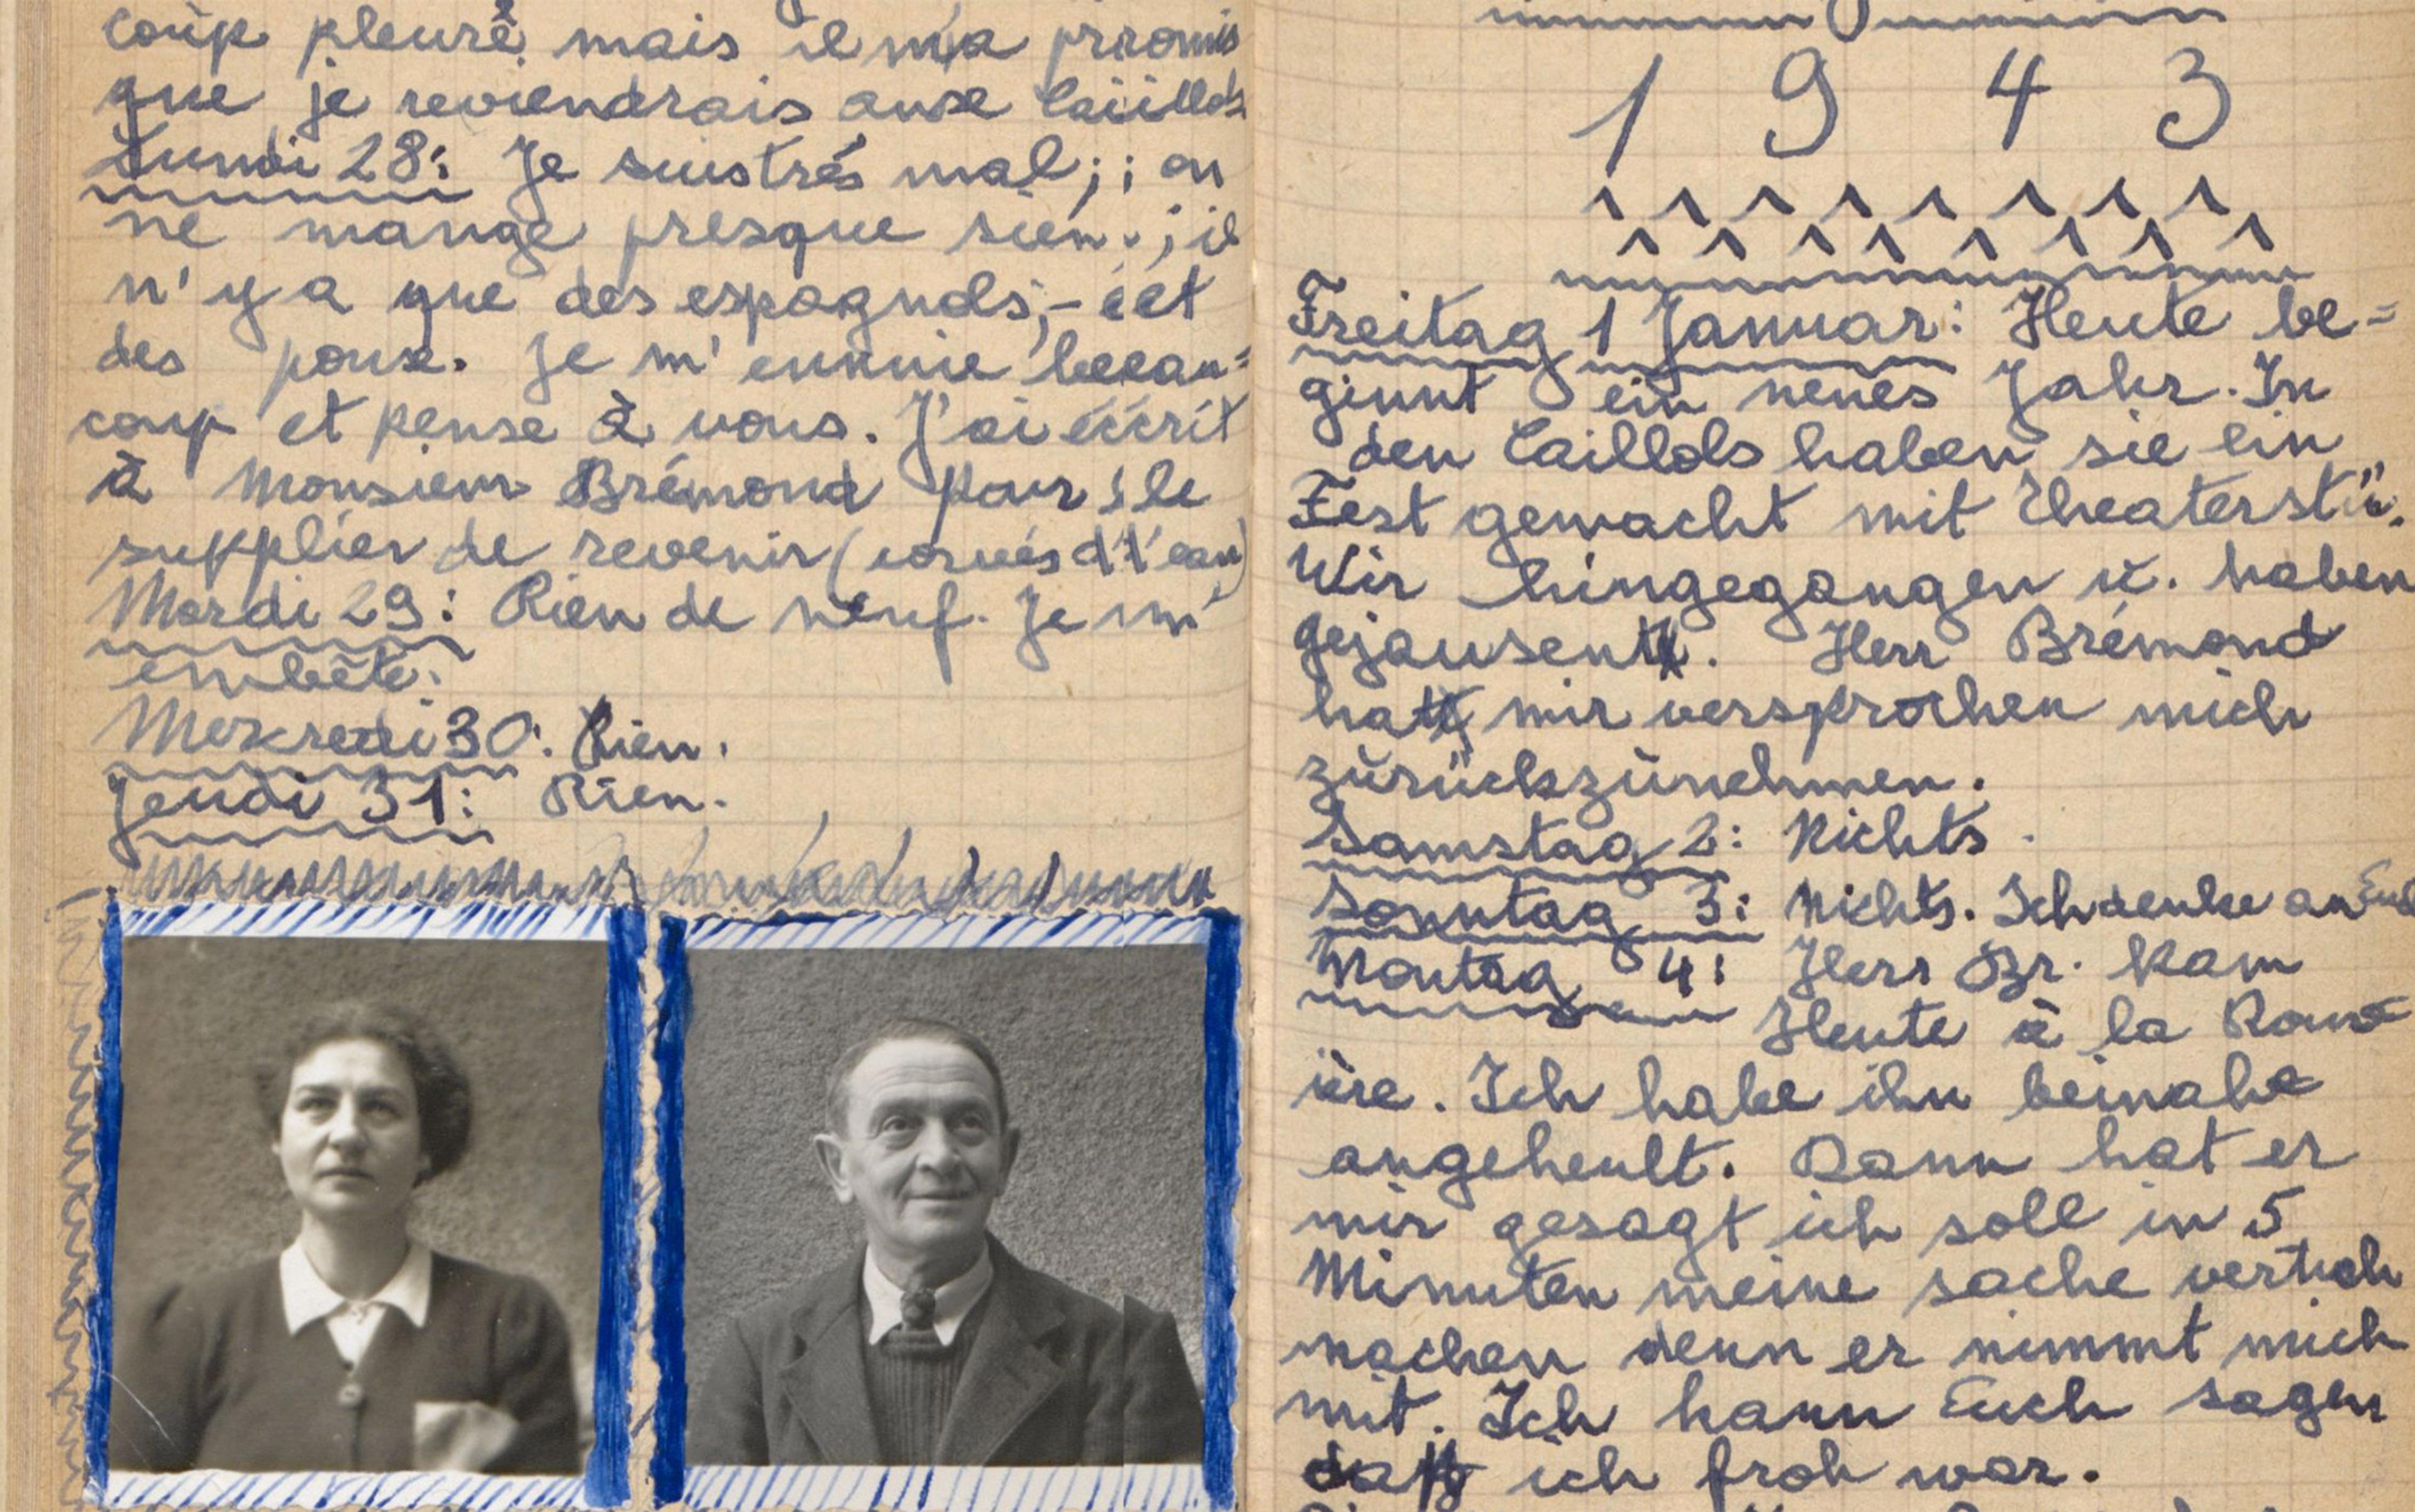 coup pleuré mais il m'a promis
que je reviendrais aux Caillols
Lundi 28: Je suis très mal; ; on
ne mange presque rien. ; il
n'y a que des espagnols, - eet
des poux. Je m'ennuie beeau=
coup et pense à vous. J'ai éécrit
à Monsieur Brémond pour le
supplier de revenir (corvés d'l'eau)
Mardi 29: Rien de neuf. Je m'
embête.
Mekredi 30: Rien.
Jeudi 31: Rien.
1 9 4 3
Freitag 1 Januar: Heute be=
ginnt ein neues Jahr. In
den Caillols haben sie ein
Fest gemacht mit Theaterstü.
Wir hingegangen u. haben
gejausent. Herr Brémond
hat mir versprochen mich
zurückzunehmen.
Samstag 2: Nichts.
Sonntag 3: Nichts. Ich denke an Euch
Montag 4: Herr Br. kam
Heute à la Rous
ière. Ich habe ihn beinahe
angeheult. Dann hat er
mir gesagt ich soll in 5
Minuten meine sache
machen denn er nimmt mich
mit. Ich kann Euch sagen
daß ich froh war.